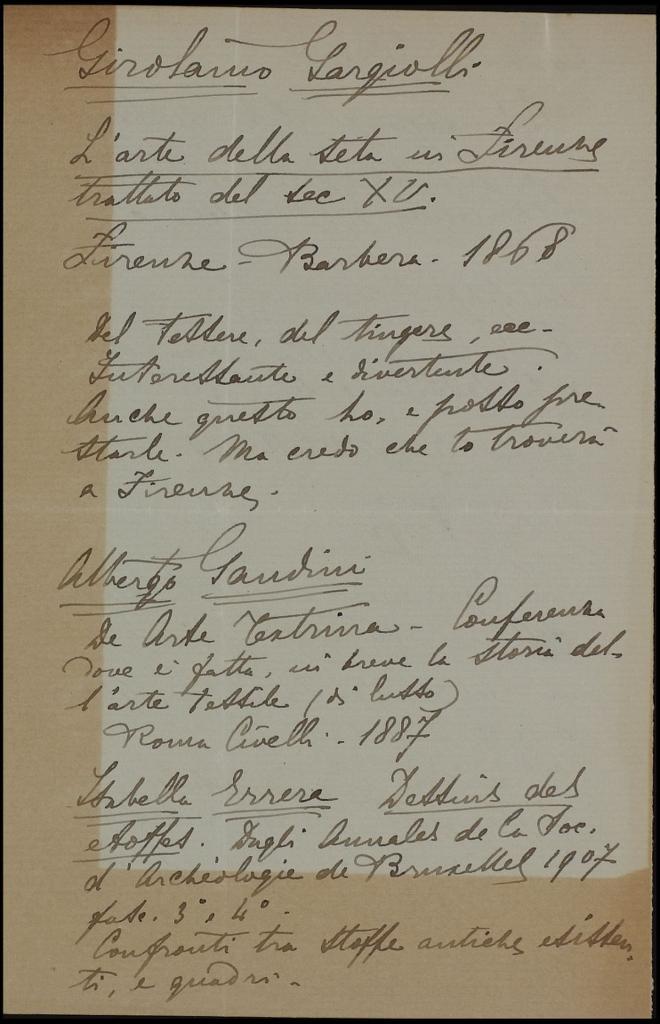 Girolamo Gargiolli
L'arte della seta in Firenze
trattato del sec XV.
Firenze - Barbera - 1868
Del tessere, del tingere, ecc -
Interessante e divertente.
Anche questo ho, e posso pre
starle. Ma credo che lo troverà
a Firenze.
Alberto Gandini
De Arte Textrina - Conferenza
dove è fatta, in breve la storia del-
l'arte tessile (di lusso)
Roma Civelli - 1887
Isabella Errera Dessins des
étoffes. Dagli Annales de la Soc.
d'Archéologie de Bruxelles 1907
fasc. 3° e 4° -
Confronti tra stoffe antiche esisten-
ti, e quadri -